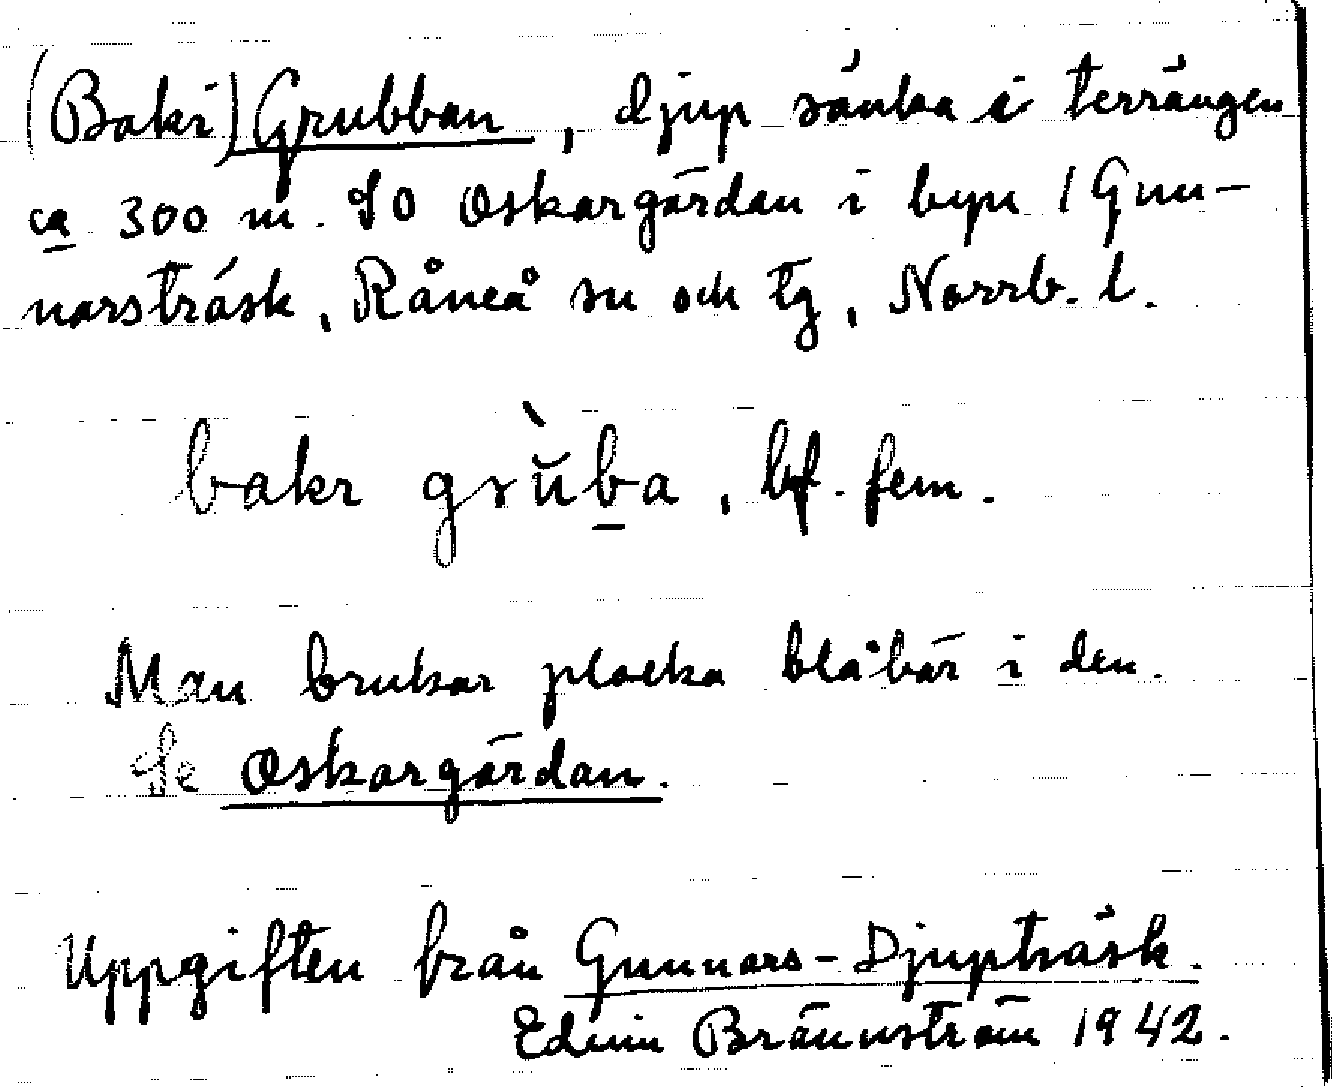 (Bakr) Grubban, djup sänka i terrängen
ca 300 m. SO Oskargärdan i byn 1 Gun-
narsträsk, Råneå sn och tg, Norrb. l.
bakr grŭ̀ba, bf. fem.
Man brukar plocka blåbär i den.
Se Oskargärdan.
Uppgiften från Gunnars-Djupträsk.
Edvin Brännström 1942.